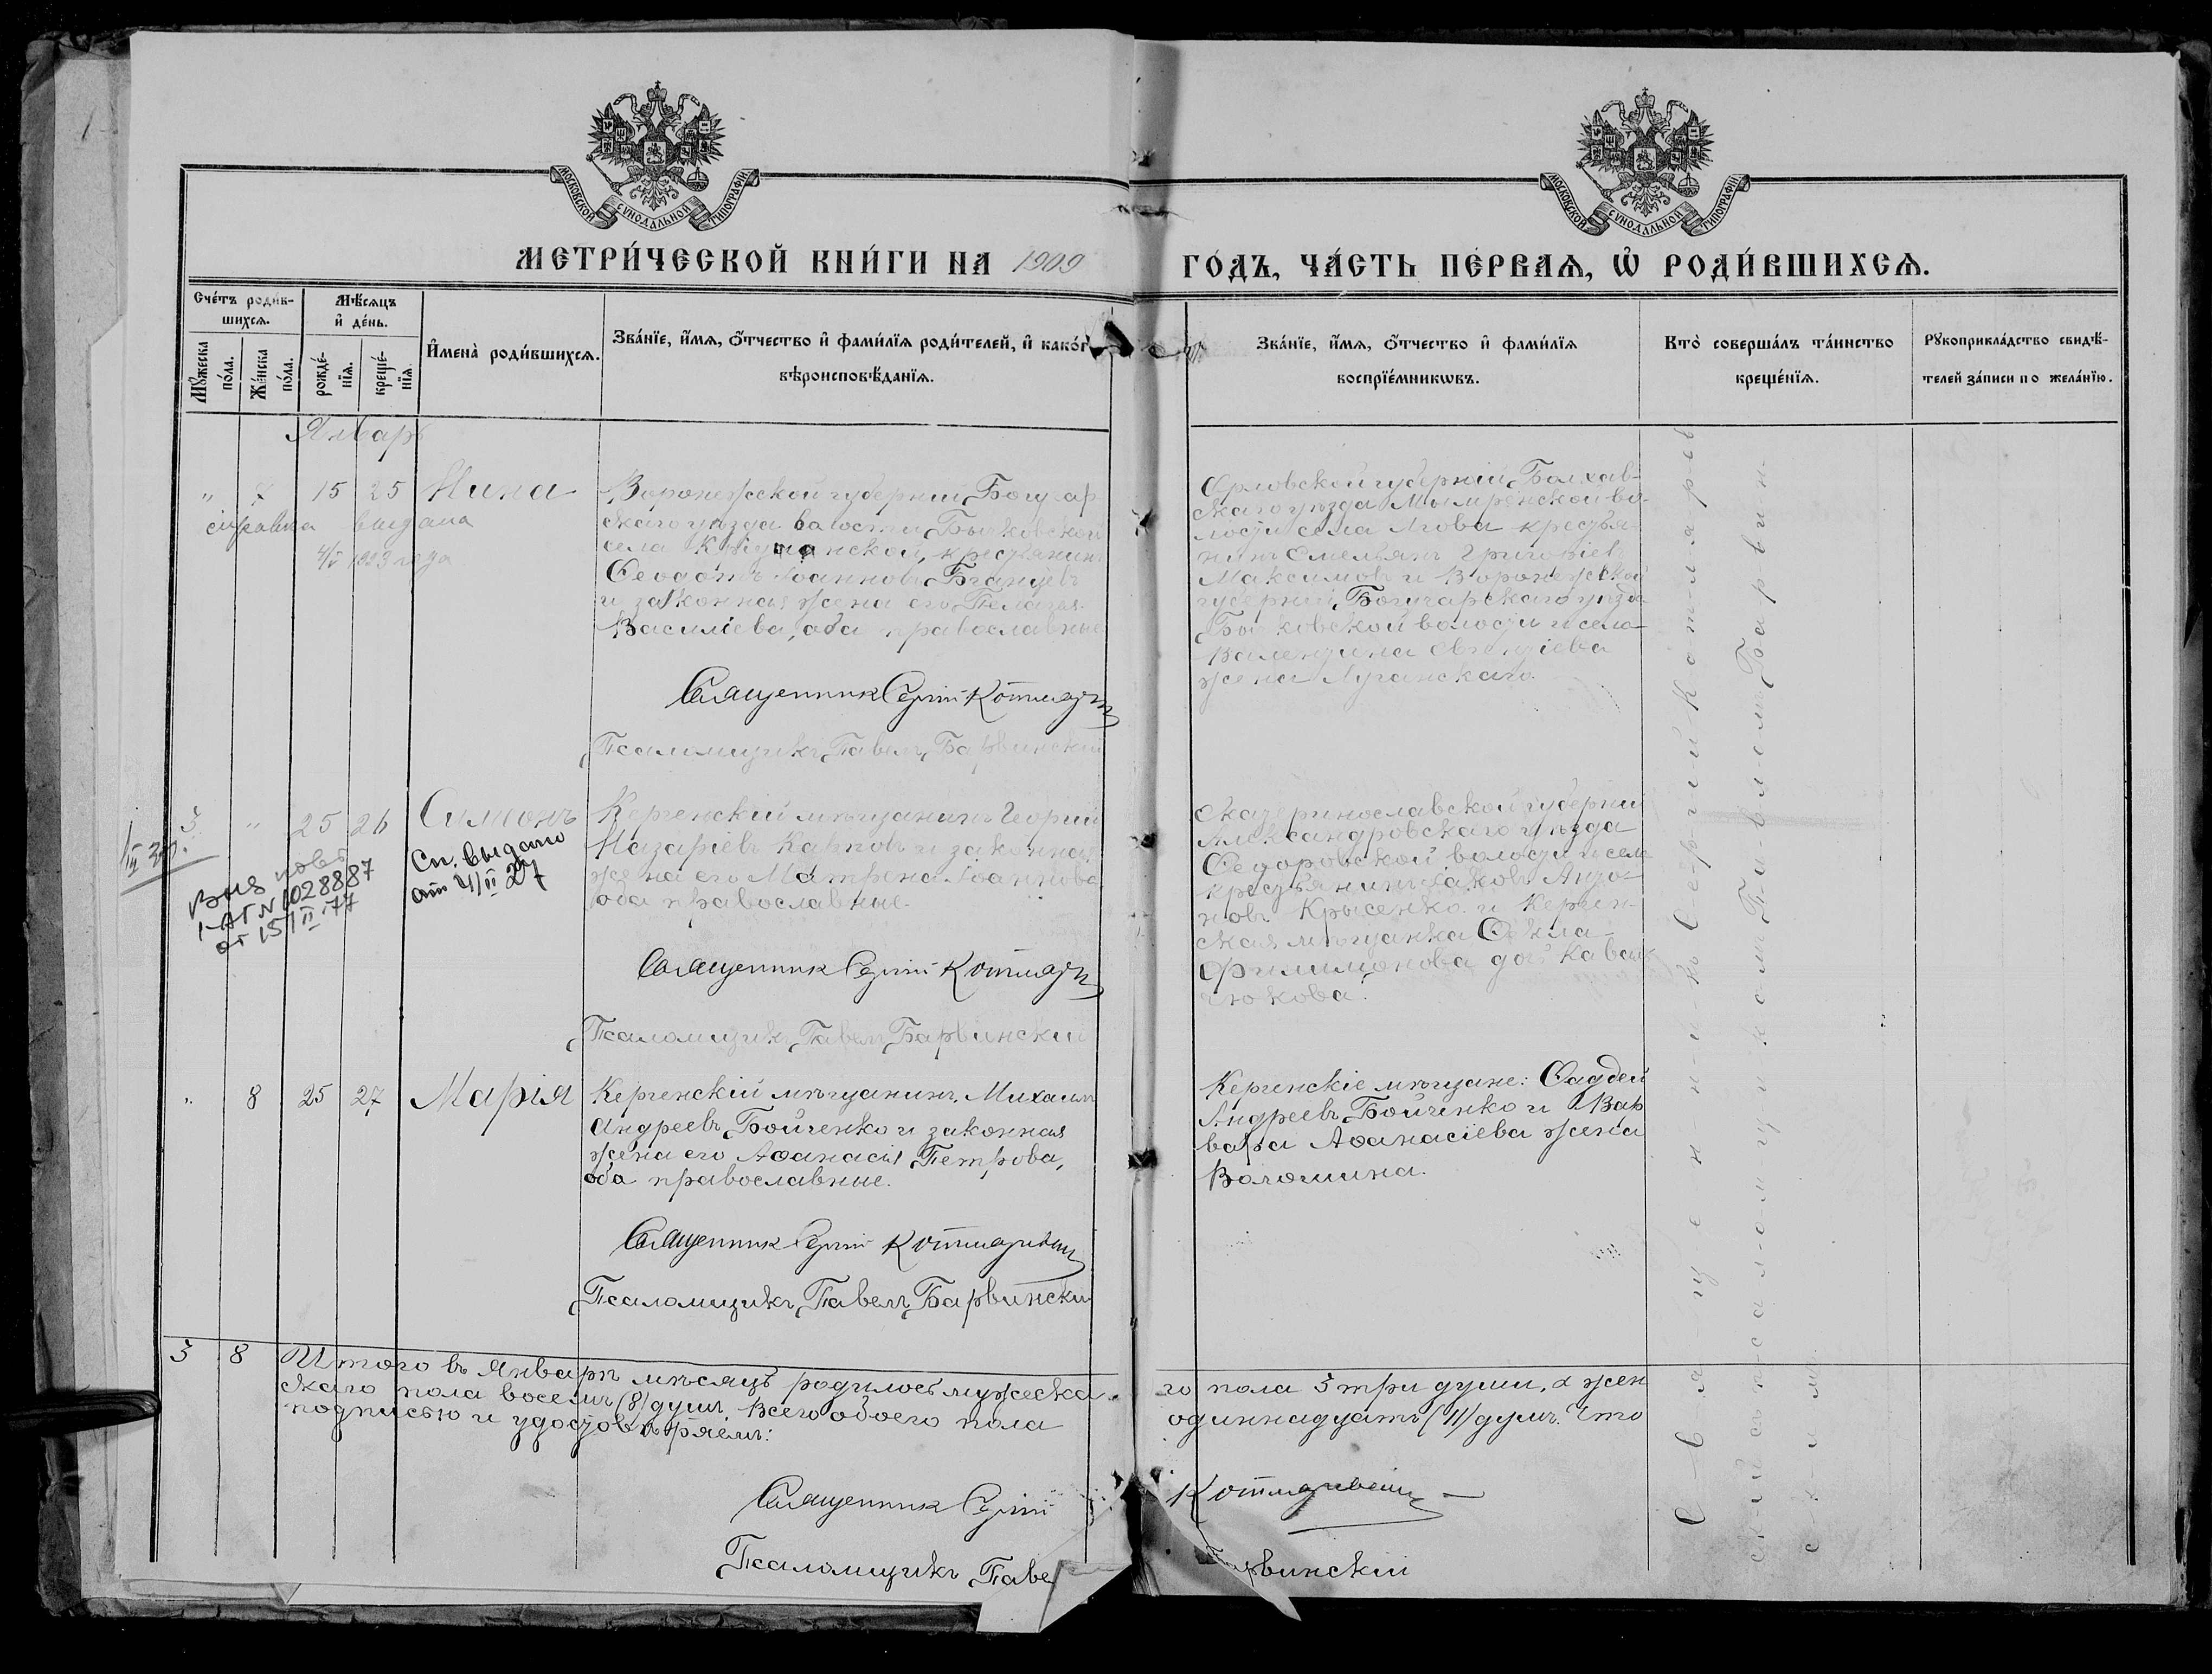 МОСКОВСКОЙ СУНОДАЛЬНОЙ ТИПОГРАФІИ
МОСКОВСКОЙ СУНОДАЛЬНОЙ ТИПОГРАФІИ
МЕТРИ́ЧЕСКОЙ КНИ́ГИ НА 1909
ГО́ДЪ, ЧА́СТЬ ПЕ́РВАѦ, Ѡ҆ РОДИ́ВШИХСѦ.
Сче́тъ роди́в-
шихсѧ.
Мꙋ́жеска
по́ла.
Же́нска
по́ла.
Мѣ́сѧцъ
и҆ де́нь.
рожде́-
нїѧ.
креще́-
нїѧ.
И҆мена̀ роди́вшихсѧ.
Зва́нїе, и҆́мѧ, ѻ҆́тчество и҆ фами́лїѧ роди́телей, и҆ како́г
вѣроисповѣ́данїѧ.
Зва́нїе, и҆́мѧ, ѻ҆́тчество и҆ фами́лїѧ
воспрїе́мникѡвъ.
Кто̀ соверша́лъ та́инство
креще́нїѧ.
Рꙋкоприкла́дство свидѣ́-
телей за́писи по жела́нїю.
Январь
" 7 15 25 Нина
справка выдана
4/V 1923 года
Воронежской губерніи Богучар
скаго уѣзда волости Бычковской
села крестьянинъ
Ѳеодотъ Іоанновъ
и законная жена его Пелагея
Василіева, оба православные
Священникъ Сергій Котляр
Псаломщикъ Павелъ Барвинскій
Орловской губерніи, Болхав-
скаго уѣзда Мымренской во-
лости села Льгова крестья-
нинъ Емельянъ Григоріевъ
Максимовъ и Воронежской
губерніи, Богучарскаго уѣзда
Бычковской волости и села
Валентина Евгеніева
жена Луганскаго.
3 " 25 26 Симонъ
Сп. выдано
от 4/II 27
Выд повт
I-АП N 1028887
от 15/II 77
Керченскій мѣщанинъ Георгій
Назаріевъ Карповъ и законная
жена его Матрена Іоаннова
оба православные.
Священникъ Сергій Котляр
Псаломщикъ Павелъ Барвинскій
Екатеринославской губерніи
Александровскаго уѣзда
Ѳедоровской волости и села
крестьянинъ Іаковъ Анто-
новъ Крысенко и Керчен-
ская мѣщанка Ѳекла
Филимонова
" 8 25 27 Марія
Керченскій мѣщанинъ, Михаилъ
Андреевъ Бойченко и законная
жена его Аѳанасія Петрова,
оба православные.
Священникъ Сергій Котляревскій
Псаломщикъ Павелъ Барвинскій
Керченскіе мѣщане: Ѳаддей
Андреевъ Бойченко и Вар
вара Аѳанасіева жена
Волошина.
С-в-я-щ-е-н-н-и-к-ъ С-е-р-г-і-й К-о-т-л-я-р-е-в
скій съ п-с-а-л-о-м-щ-и-к-о-м-ъ П-а-в-л-о-м-ъ Б-а-р-в-и-н-
с-к-и-м-ъ.
3 8 Итого въ Январѣ мѣсяцѣ родилось мужеска-
го пола 3 три души, а жен
скаго пола восемь (8) душъ, всего обоего пола
одиннадцать (11) душъ. Что
подписью и удостовѣряемъ:
Священникъ Сергій
Котляревскій
Псаломщикъ Паве
рвинскій